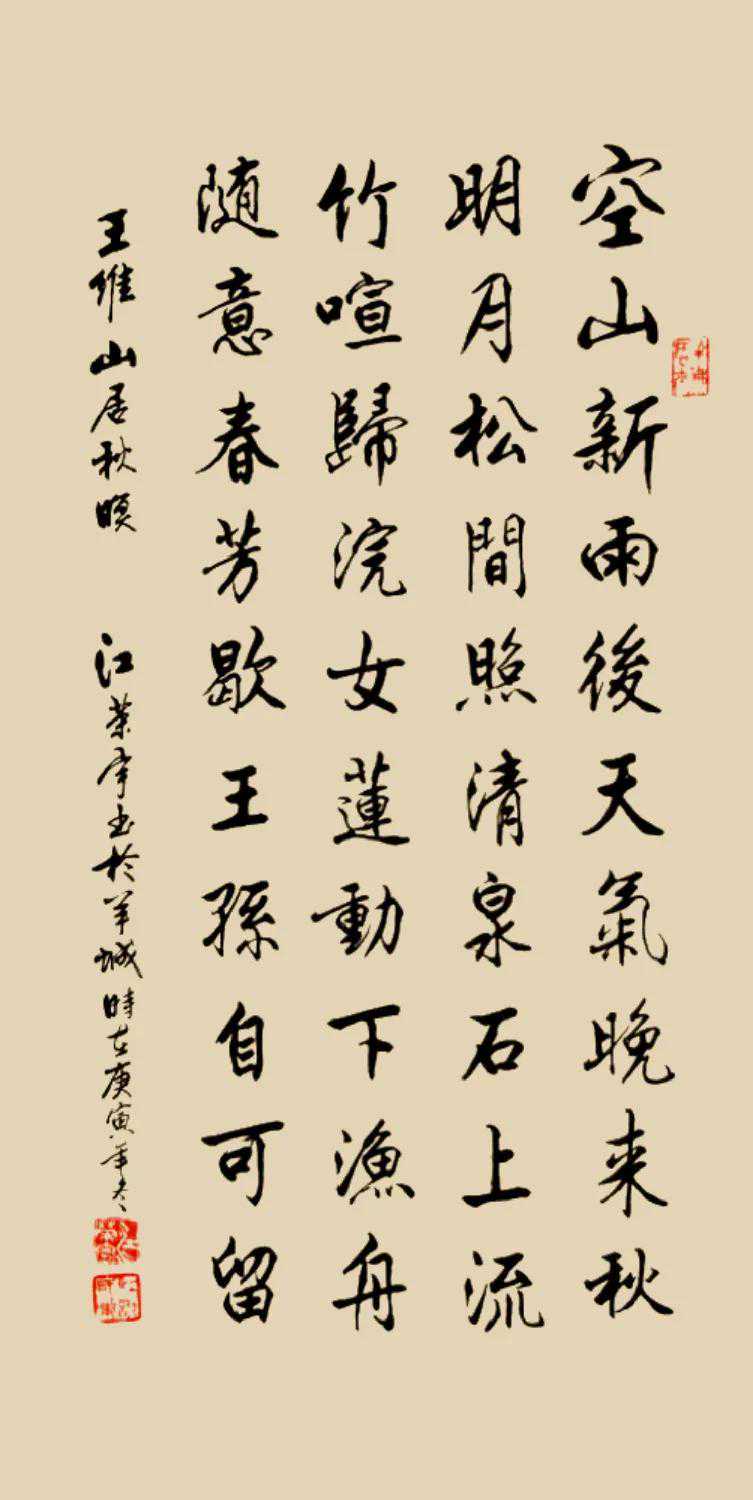 空山新雨後天氣晚来秋
明月松間照清泉石上流
竹喧歸浣女蓮動下漁舟
随意春芳歇王孫自可留
王維山居秋暝
江榮軍书於羊城時在庚寅年冬